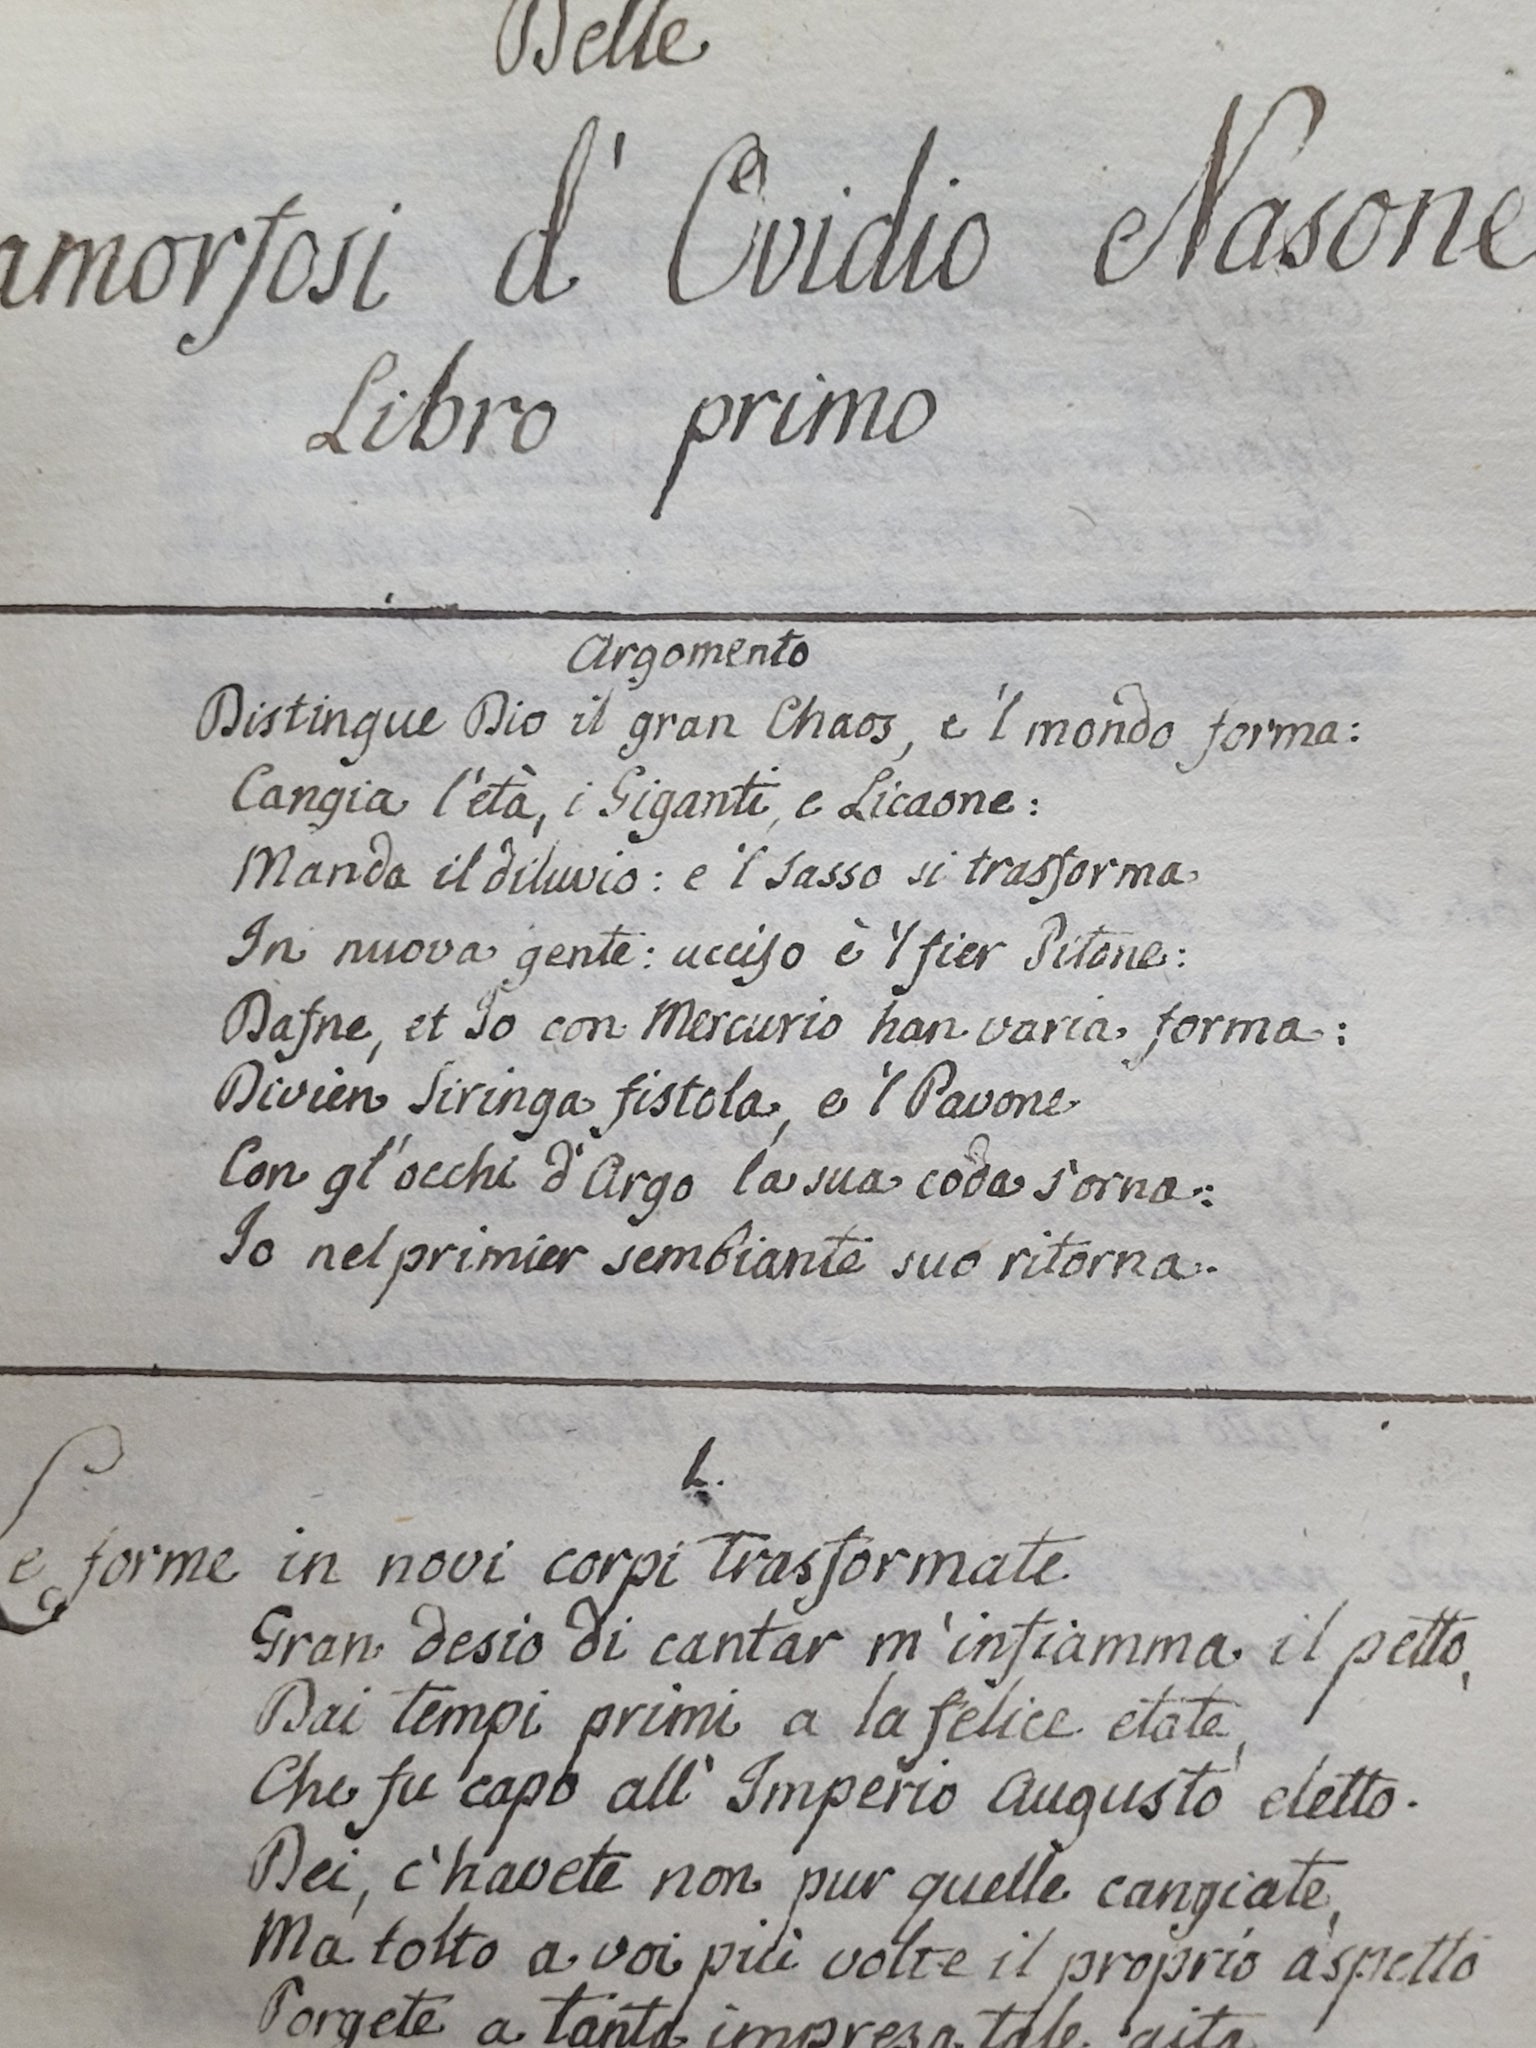 Delle
amorfosi d' Ovidio Nasone
Libro primo
Argomento
Distingue Dio il gran Chaos, e 'l mondo forma:
Cangia l'età, i Giganti, e Licaone:
Manda il diluvio: e 'l sasso si trasforma
In nuova gente: ucciso è 'l fier Pitone:
Dafne, et Io con Mercurio han varia forma:
Divien Siringa fistola, e 'l Pavone
Con gl'occhi d'Argo la sua coda s'orna:
Io nel primier sembiante suo ritorna.
1.
Le forme in novi corpi trasformate
Gran desio di cantar m'infiamma il petto,
Dai tempi primi a la felice etate,
Che fu capo all' Imperio Augusto eletto.
Dei, c'havete non pur quelle cangiate,
Ma tolto a voi più volte il proprio aspetto
Porgete a tanta impresa tale aita